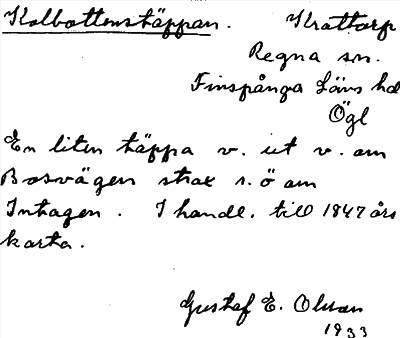 Kolbottenstäppan. Krattorp
Regna sn.
Finspånga läns hd
Ögl
En liten täppa v. ut v. om
Bosvägen strax s.ö om
Inhagen. I handl. till 1847 års
karta.
Gustaf E. Olsson
1933